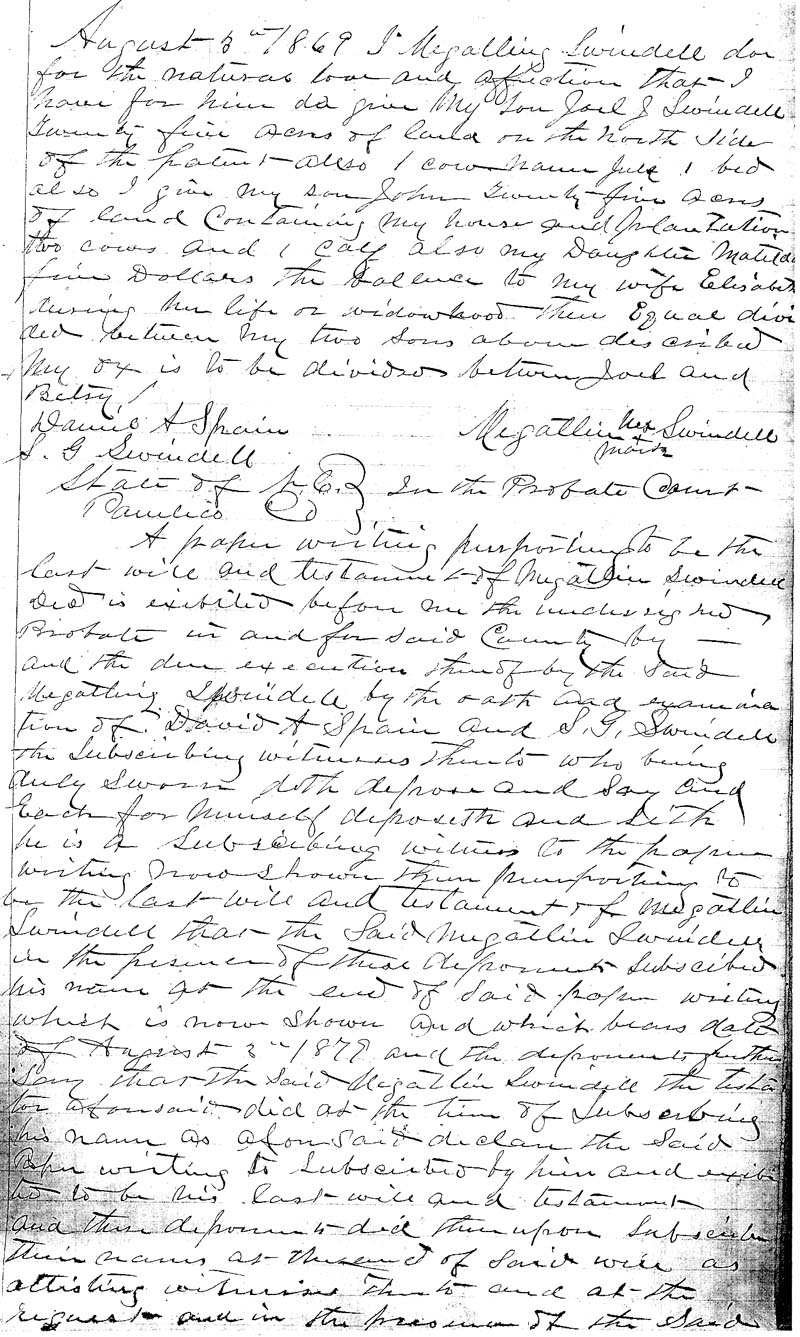 August 3rd 1869 I Megatling Swindell doe
for the natural love and affection that I
have for him do give My Son Joel J Swindell
Twenty five acres of land on the North Side
of the patent also 1 cow Name July 1 bed
also I give my son John Twenty five acres
of land Containing My house and plantation
two cows and 1 calf also my Daughter Matilda
five Dollars the ballence to my wife Elisabeth
during her life or widowhood then Equal divi
ded between My two Sons above described
My ox is to be divided between Joel and
Betsy
David A Spain Megatlin his Swindell
S. G Swindell mark
State of N.C. } In the Probate Court
Pamlico Co }
A paper writing purporting to be the
last will and testament of Megatlin Swindell
Decd is exibited before me the undersigned
Probate in and for said County by —
and the due execution thereof by the Said
Megatling Swindell by the oath and examina
tion of David A Spain and S. G. Swindell
the Subscribing witnesses thereto who being
duly Sworn doth depose and Say and
Each for himself deposeth and Sith
he is a Subscibing witness to the paper
writing now shown them purporting to
be the last will and testament of Megatlin
Swindell that the Said Megatlin Swindell
in the presence of these deponents Subscibed
his name at the end of said paper writing
which is now Shown and which bears date
of August 3rd 1879 and the deponents further
Say that the Said Megatlin Swindell the testa
tor aforesaid did at the time of Subscribing
his name as aforesaid declare the Said
Paper writing to Subscribed by him and exibi
ted to be his last will and testament
and these deponents did thereupon Subscribe
their names at the end of Said will as
attisting witnesses thereto and at the
request and in the presence of the Said